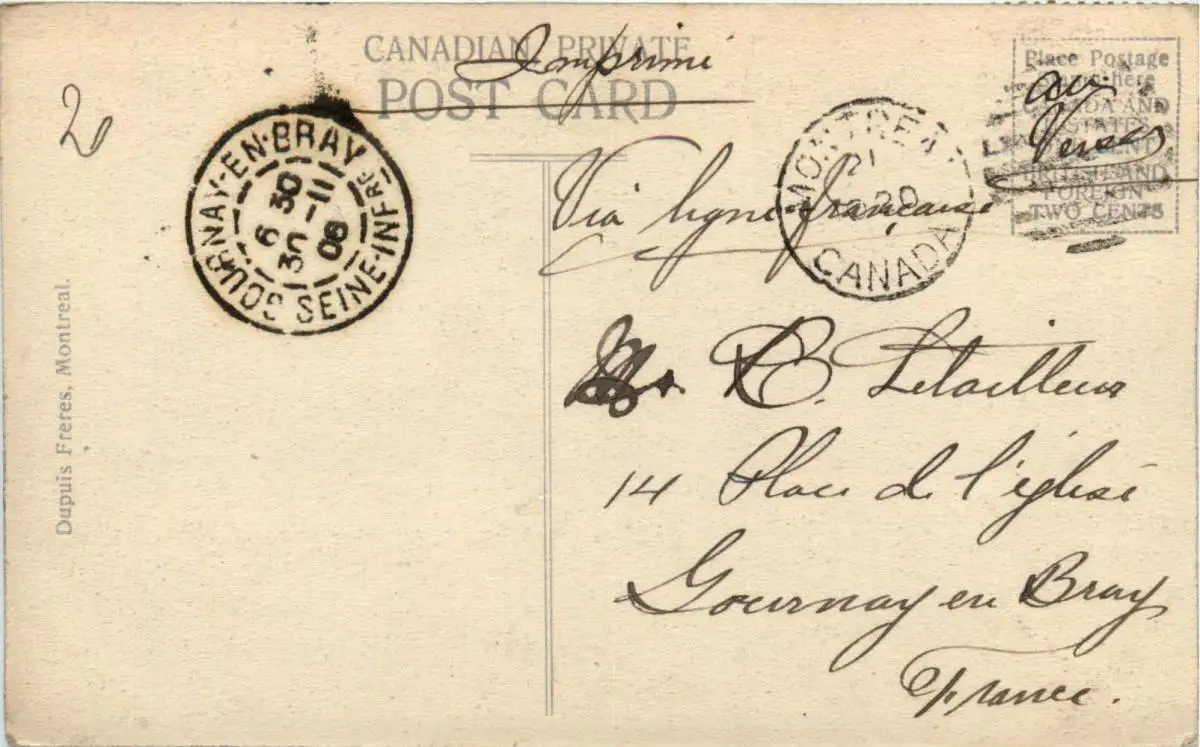 CANADIAN PRIVATE
POST CARD
Imprimé
Place Postage
here
CANADA AND
STATES
CENT
BRITISH AND
FOREIGN
TWO CENTS
au
Verso
2
GOURNAY-EN-BRAY
6 30
30 - 11
06
SEINE-INFRE
MONTREAL
21
CANADA
Via ligne française
R. Letailleur
14 Place de l'église
Gournay en Bray
France.
Dupuis Freres, Montreal.